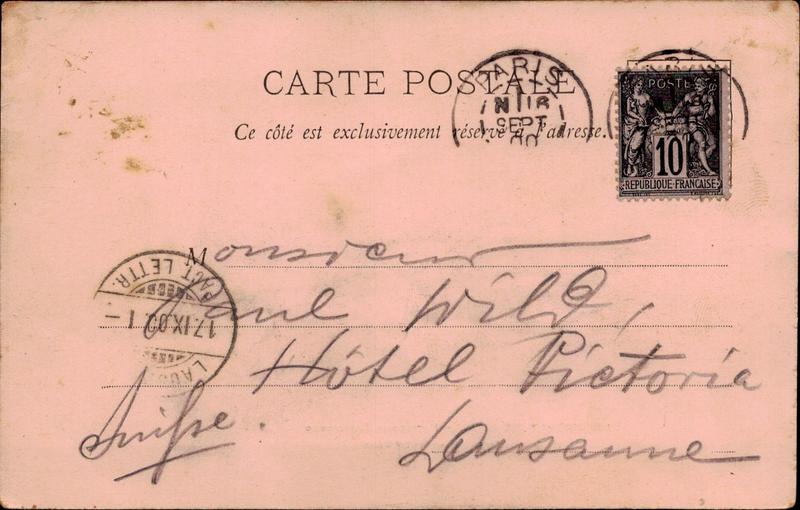 CARTE POSTALE
Ce côté est exclusivement réservé à l'adresse.
PARIS
16
SEPT
00
POSTE
10
REPUBLIQUE FRANCAISE
Monsieur
Paul Wild,
Hôtel Victoria
Lausanne
Suisse.
FACT. LETTR.
17.IX.00.1-